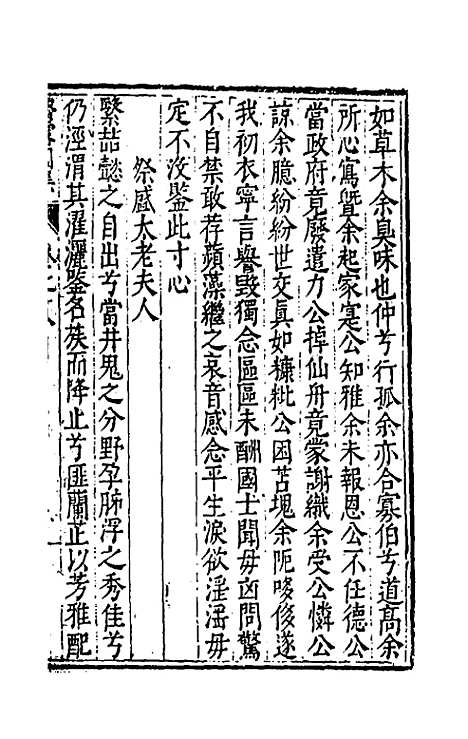 如草木余臭味也仲兮行孤余亦合寡伯兮道高余
所心寫暨余起家寔公知雅余未報恩公不任德公
當政府竟廢遺力公掉仙舟竟蒙謝織余受公憐公
諒余臆紛紛世交真如糠粃公因苫塊余阨哆侈遂
我初衣寧言譽毀獨念區區未酬國士聞毋凶問驚
不自禁敢荐蘋藻繼之哀音感念平生淚欲淫淫毋
定不沒鑒此寸心
祭戚太老夫人
繄喆懿之自出兮當井鬼之分野孕肺浮之秀佳兮
仍涇渭其濯灑鑒名族而降止兮匪蘭芷以芳雅配